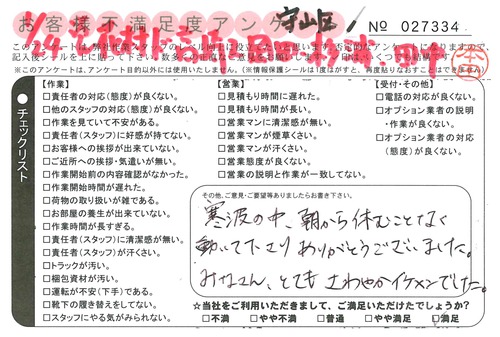 お客様不満足度アンケート
守山区
№ 027334
このアンケートは、弊社作業スタッフのレベル向上に役立てたいと思います。
(※このアンケートは、アンケート目的以外には使用いたしません。(※情報保護シールは1度はがすと、再度貼りなおすことはできません)
チェックリスト
【作業】
□責任者の対応(態度)が良くない。
□他のスタッフの対応(態度)が良くない。
□作業を見ていて不安がある。
□責任者(スタッフ)に好感が持てない。
□お客様への挨拶が出来ていない。
□ご近所への挨拶・気遣いが無い。
□作業開始前の内容確認がなかった。
□作業開始時間が遅れた。
□荷物の取り扱いが雑である。
□お部屋の養生が出来ていない。
□作業時間が長すぎる。
□責任者(スタッフ)に清潔感が無い。
□責任者(スタッフ)が汗くさい。
□トラックが汚い。
□梱包資材が汚い。
□運転が不安(下手)である。
□靴下の履き替えをしてない。
□スタッフにやる気がみられない。
【営業】
□見積もり時間に遅れた。
□見積もり時間が長い。
□営業マンに清潔感が無い。
□営業マンが煙草くさい。
□営業マンが汗くさい。
□営業態度が良くない。
□営業の説明と作業が一致してない。
【受付・その他】
□電話の対応が良くない。
□オプション業者の説明
・作業が良くない。
□オプション業者の対応
(態度)が良くない。
その他、ご意見・ご要望等ありましたらお書き下さい。
寒波の中、朝から休むことなく
動いて下さりありがとうございました。
みなさん、とてもさわやかイケメンでした。
☆当社をご利用いただきまして、ご満足いただけたでしょうか?
□不満 □やや不満 □普通 □やや満足 □満足